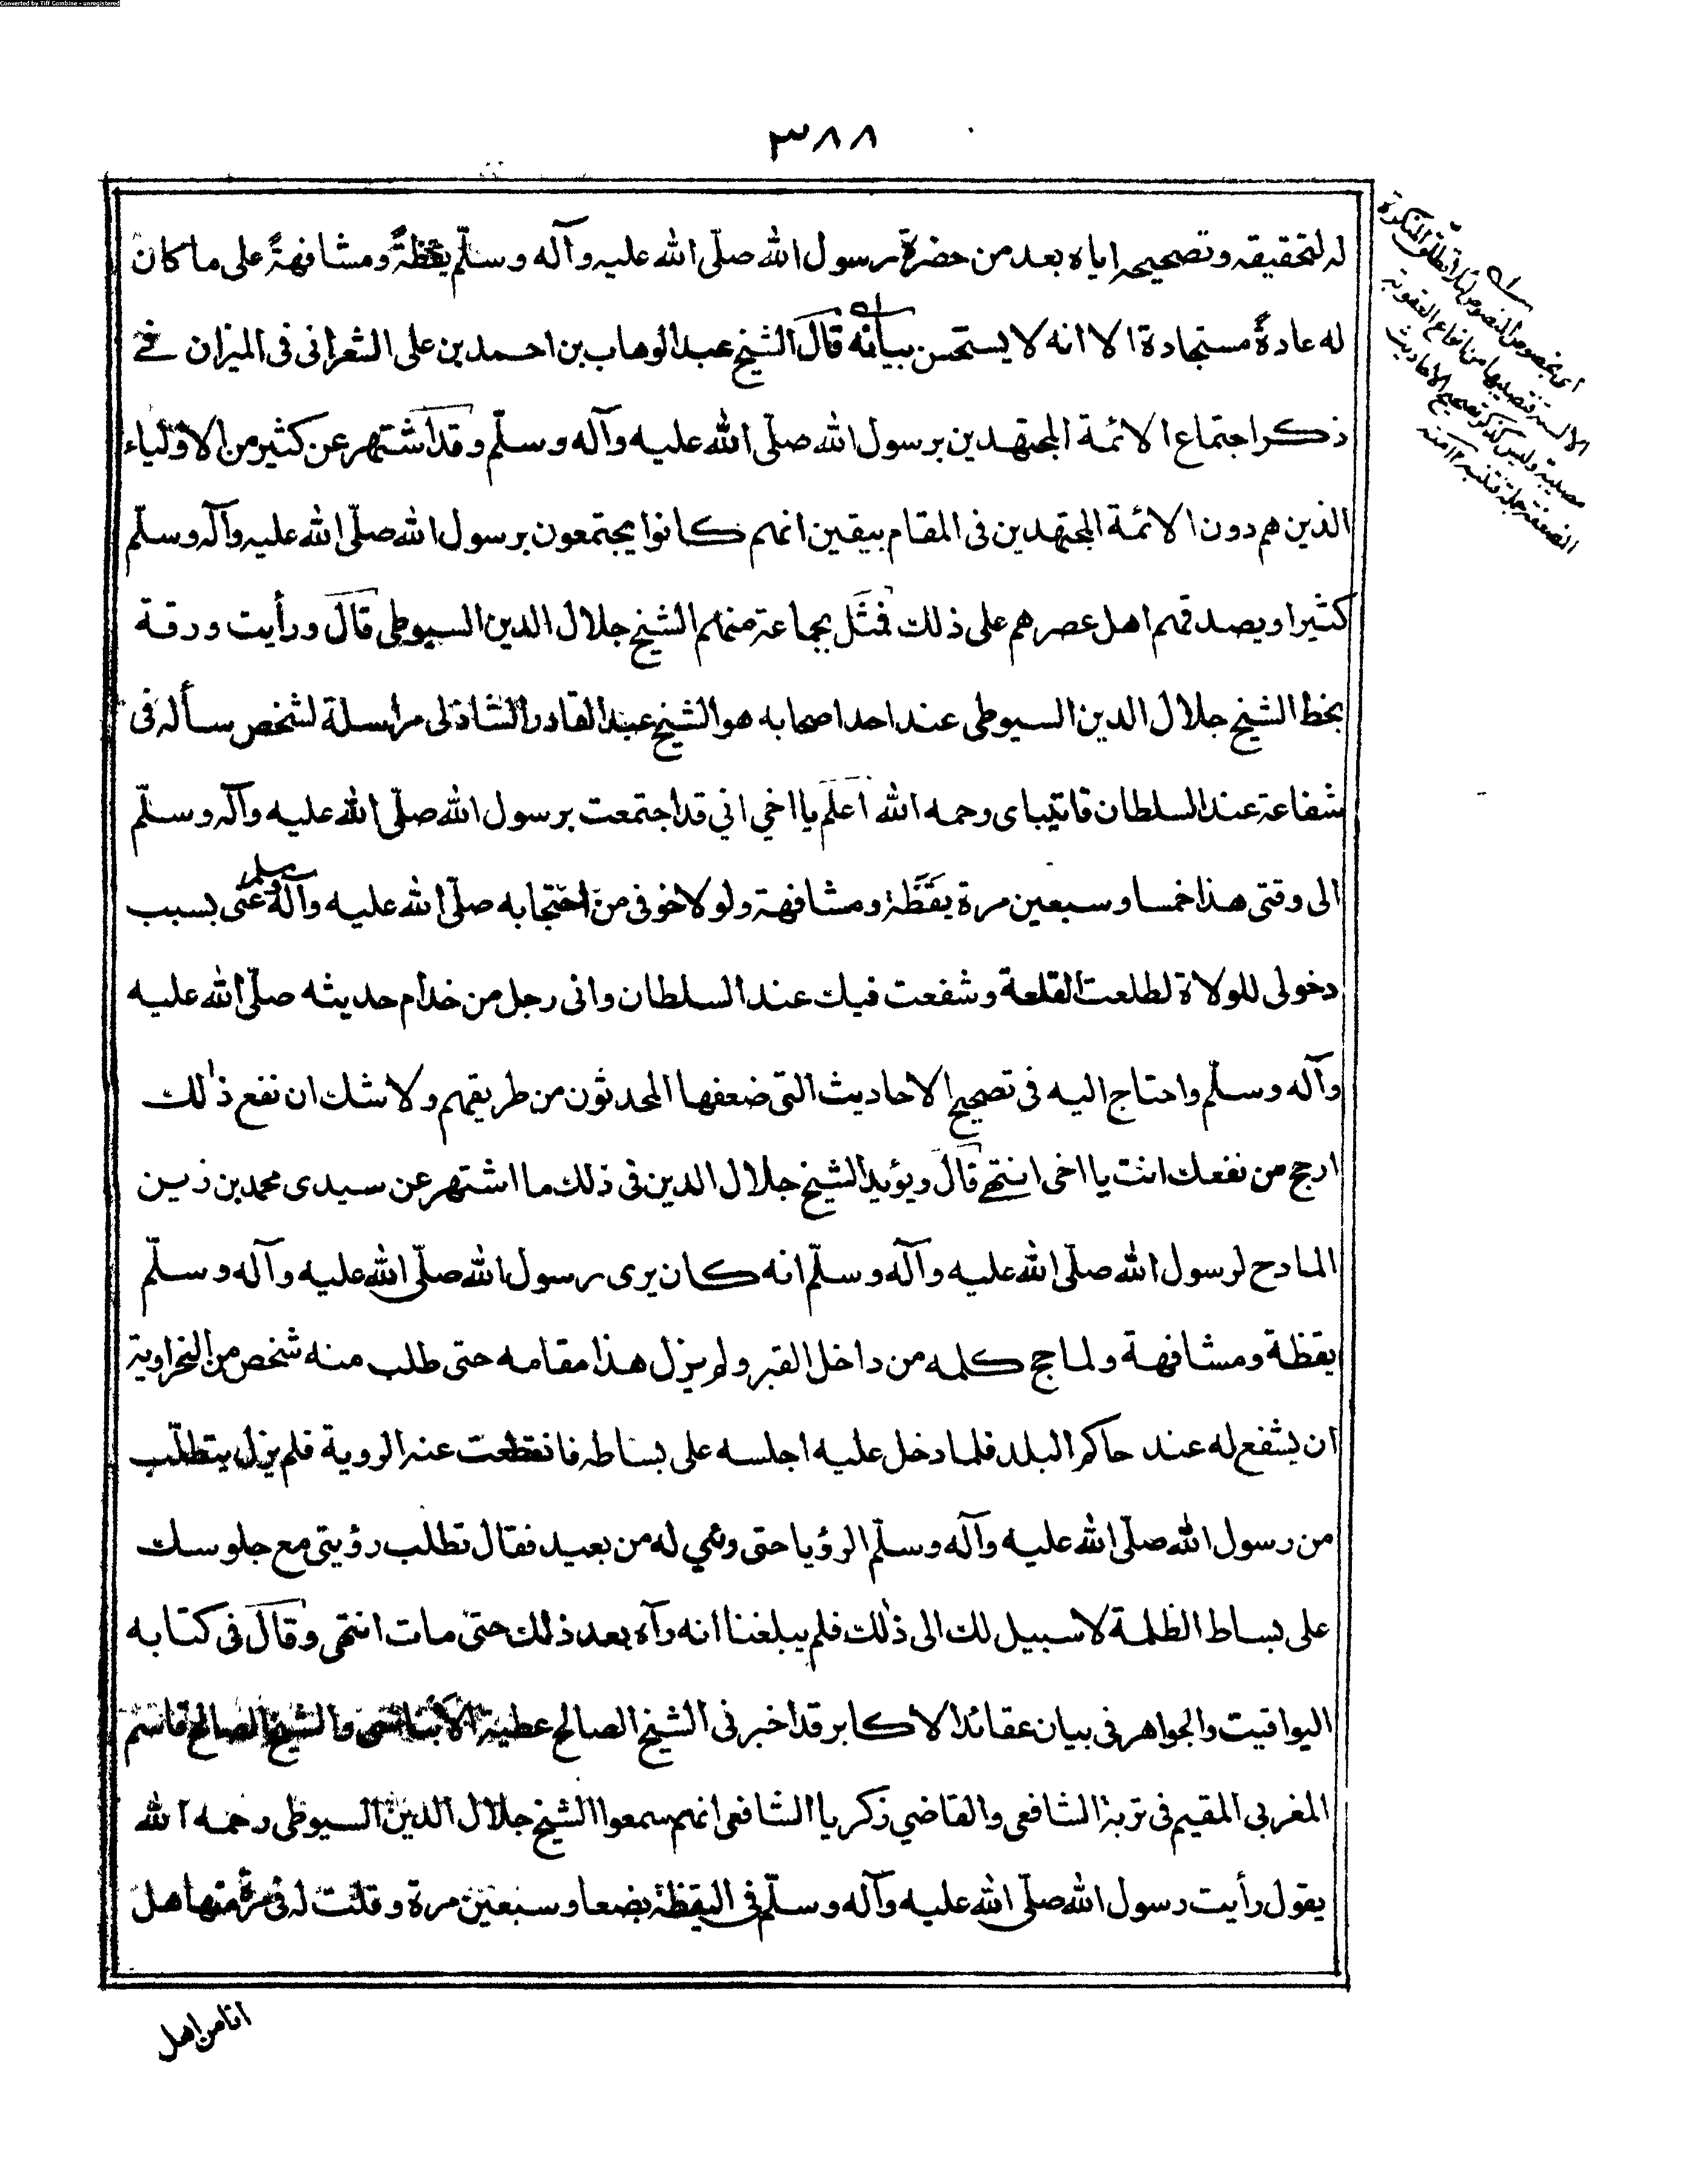 Converted by Tiff Combine - unregistered
٣٨٨
له لتحقيقه وتصحيحه اياه بعد من حضرة رسول الله صلّى الله عليه وآله وسلّم يقظةً ومشافهةً على ما كان
له عادةً مستجادة الا انه لا يستحسن بيانه قال الشيخ عبد الوهاب بن احمد بن على الشعرانى فى الميزان فے
ذكر اجتماع الائمة المجتهدين برسول الله صلّى الله عليه وآله وسلّم وقد اشتهر عن كثير من الاولياء
الذين هم دون الائمة المجتهدين فى المقام بيقين انهم كانوا يجتمعون برسول الله صلّى الله عليه وآله وسلّم
كثيرا ويصدقهم اهل عصرهم على ذلك فمثّل بجماعة منهم الشيخ جلال الدين السيوطى قال ورأيت ورقة
بخط الشيخ جلال الدين السيوطى عند احد اصحابه هو الشيخ عبد القادر الشاذلى مراسلة لشخص سأله فى
شفاعة عند السلطان قايتباى رحمه الله اعلم يا اخي اني قد اجتمعت برسول الله صلّى الله عليه وآله وسلّم
الى وقتى هذا خمسا وسبعين مرة يقظة ومشافهة ولولا خوفى من احتجابه صلّى الله عليه وآله وسلم عنى بسبب
دخولى للولاة لطلعت القلعة وشفعت فيك عند السلطان وانى رجل من خدام حديثه صلّى الله عليه
وآله وسلّم واحتاج اليه فى تصحيح الاحاديث التى ضعفها المحدثون من طريقهم ولا شك ان نفع ذلك
ارجح من نفعك انت يا اخى انتهے قال ويؤيد الشيخ جلال الدين فى ذلك ما اشتهر عن سيدى محمد بن زين
المادح لرسول الله صلّى الله عليه وآله وسلّم انه كان يرى رسول الله صلّى الله عليه وآله وسلّم
يقظة ومشافهة ولما حج كلمه من داخل القبر ولم يزل هذا مقامه حتى طلب منه شخص من النحراوية
ان يشفع له عند حاكم البلد فلما دخل عليه اجلسه على بساطه فانقطعت عنه الروية فلم يزل يتطلّب
من رسول الله صلّى الله عليه وآله وسلّم الرؤيا حتى رئي له من بعيد فقال تطلب رؤيتى مع جلوسك
على بساط الظلمة لا سبيل لك الى ذلك فلم يبلغنا انه رآه بعد ذلك حتى مات انتهى وقال فى كتابه
اليواقيت والجواهر فى بيان عقائد الاكابر قد اخبرنى الشيخ الصالح عطية الأبناسى والشيخ الصالح قاسم
المغربى المقيم فى تربة الشافعى والقاضي زكريا الشافعى انهم سمعوا الشيخ جلال الدين السيوطى رحمه الله
يقول رأيت رسول الله صلّى الله عليه وآله وسلّم فى اليقظة بضعا وسبعين مرة وقلت له فى مرة منها هل
انا من اهل
الالسنة فتصليها من انواع العقوبة